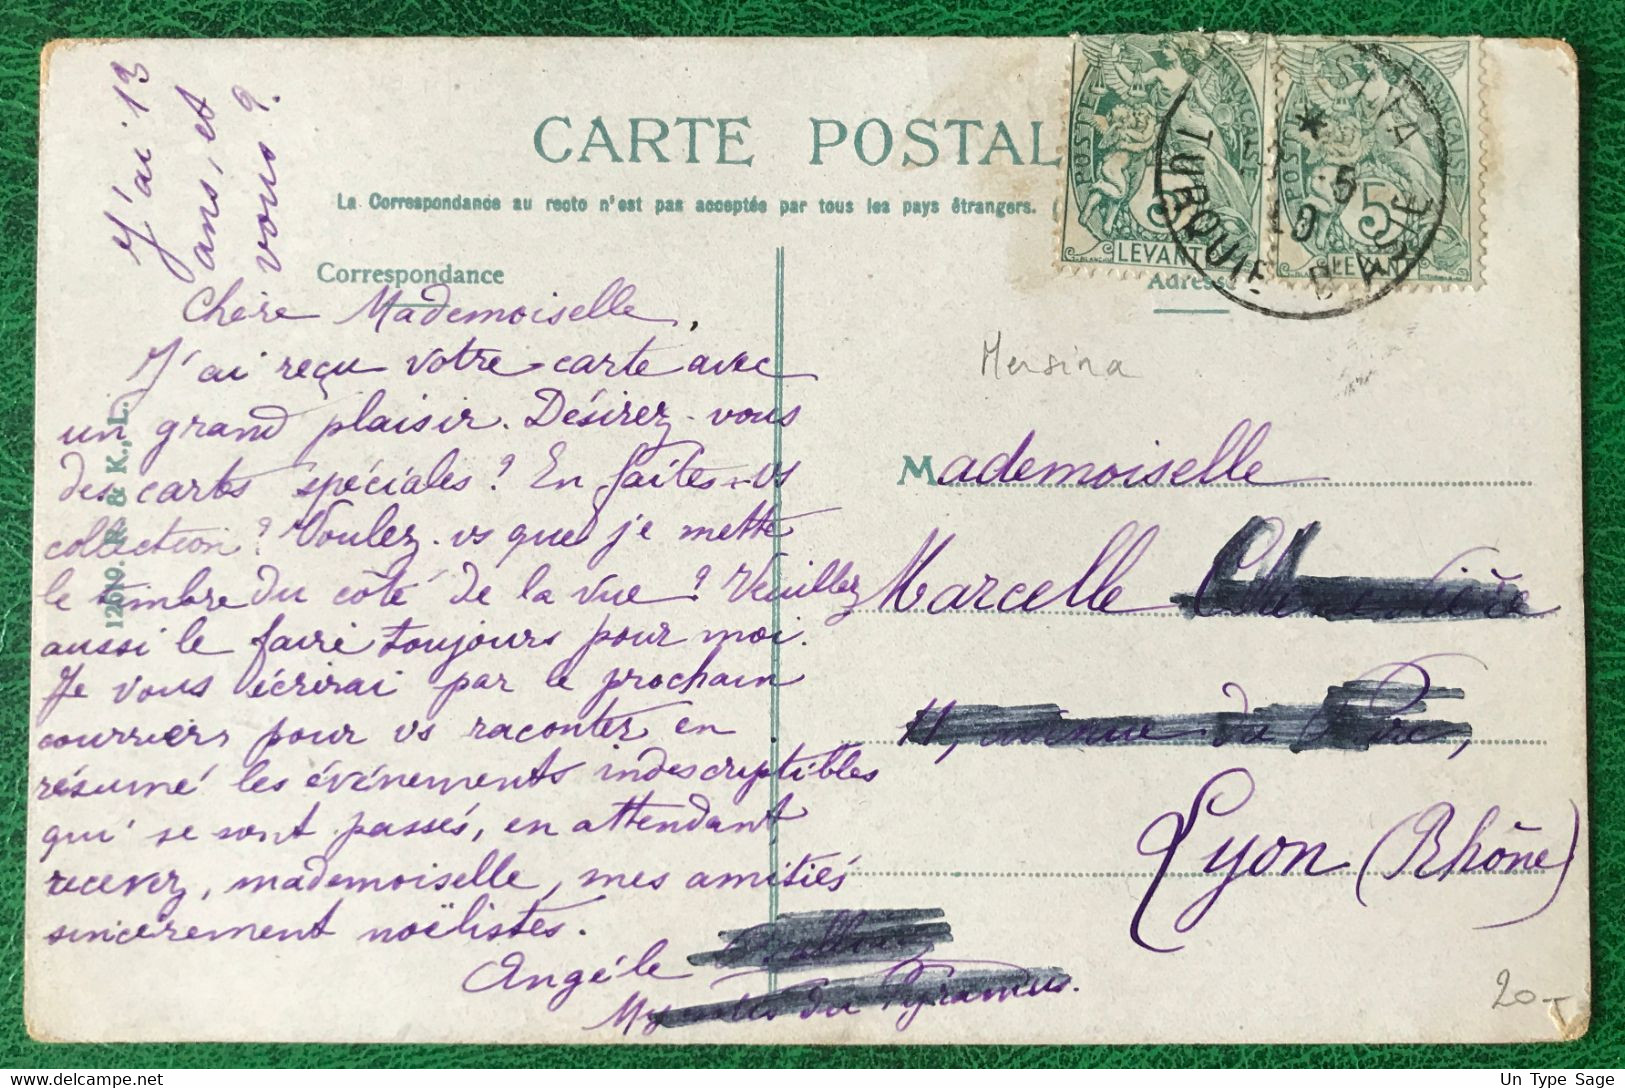 J'ai 13
ans, et
vous ?
CARTE POSTAL
La Correspondance au recto n'est pas acceptée par tous les pays étrangers. (
Correspondance
Adresse
POSTE FRANÇAISE
5
LEVANT
POSTE FRANÇAISE
5
LEVANT
TURQUIE
Mersina
12619. R. & K., L.
Chère Mademoiselle,
J'ai reçu votre carte avec
un grand plaisir. Désirez-vous
des cartes spéciales ? En faites-vs
collection ? Voulez-vs que je mette
le timbre du côté de la vue ? Veuillez
aussi le faire toujours pour moi.
Je vous écrirai par le prochain
courriers pour vs raconter en
résumé les événements indescriptibles
qui se sont passés, en attendant,
recevez, mademoiselle, mes amitiés
sincèrement noëlistes.
Angèle
du Pyramus.
Mademoiselle
Marcelle
11, avenue du Parc,
Lyon (Rhône)
20-
Un Type Sage